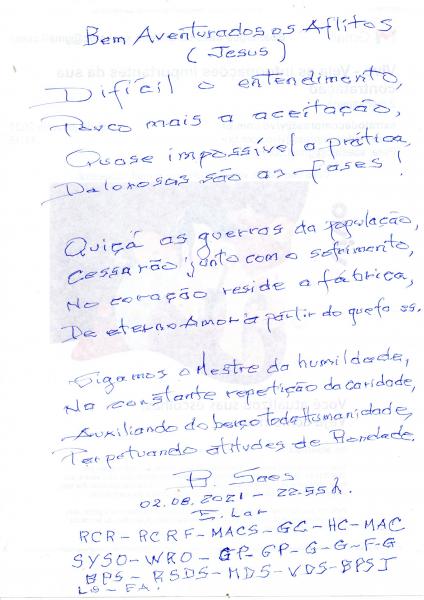 Bem Aventurados os Aflitos
(Jesus)
Difícil o entendimento,
Pouco mais a aceitação,
Quase impossível a prática,
Dolorosas são as fases!
Quiçá as guerras da população,
Cessarão junto com o sofrimento,
No coração reside a fábrica,
De eterno Amor a partir do que
Sigamos o Mestre da humildade,
Na constante repetição da caridade,
Auxiliando do berço toda Humanidade,
Perpetuando atitudes de Bondade.
B. Saes
02.08.2021 - 22:55h.
E. Lar
RCR - RCRF - MACS - GC - HC - MAC
SYSO - WRO - GP - GP - G - G - F - G
BPS - RSDS - MDS - VDS - BPSJ
LS - FA.